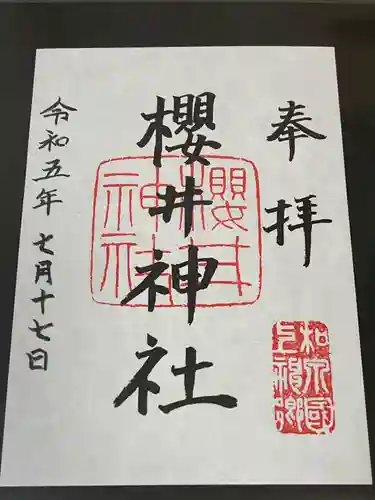 奉拝
櫻井神社
櫻井
神社
令和五年 七月十七日